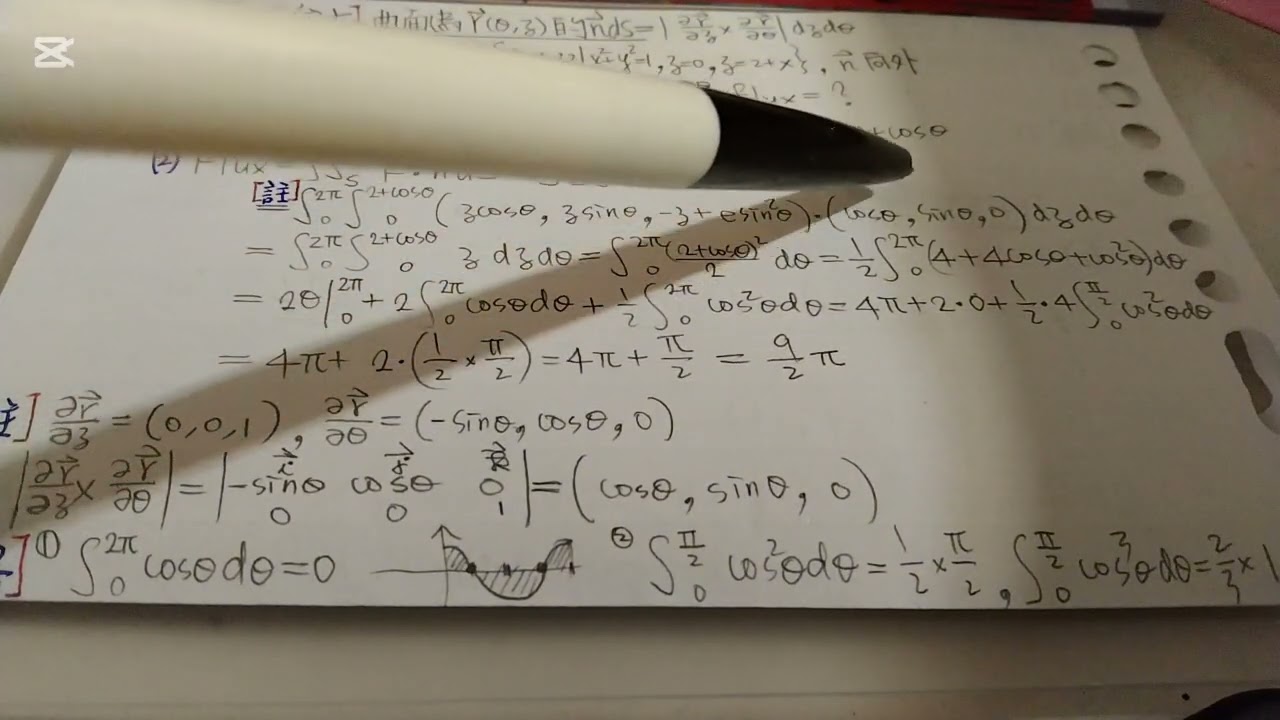 曲面S表 r⃗(θ,z) 的 n⃗ds=|∂r⃗/∂z × ∂r⃗/∂θ| dzdθ
x²+y²=1, z=0, z=2+x}, n⃗ 向外
Flux=?
+cosθ
(2) Flux
[註] ∫₀^2π ∫₀^2+cosθ (zcosθ, zsinθ, -z+esin²θ)·(cosθ, sinθ, 0) dzdθ
= ∫₀^2π ∫₀^2+cosθ z dzdθ = ∫₀^2π (2+cosθ)²/2 dθ = 1/2 ∫₀^2π (4+4cosθ+cos²θ)dθ
= 2θ|₀^2π + 2∫₀^2π cosθdθ + 1/2 ∫₀^2π cos²θdθ = 4π+2·0+1/2·4∫₀^π/2 cos²θdθ
= 4π+ 2·(1/2 × π/2) = 4π + π/2 = 9/2 π
註] ∂r⃗/∂z = (0,0,1), ∂r⃗/∂θ = (-sinθ, cosθ, 0)
|∂r⃗/∂z × ∂r⃗/∂θ| = | i⃗ j⃗ k⃗ ; -sinθ cosθ 0 ; 0 0 1 | = (cosθ, sinθ, 0)
] ① ∫₀^2π cosθdθ=0 ② ∫₀^π/2 cos²θdθ = 1/2 × π/2, ∫₀^π/2 cos³θdθ = 2/3 × 1